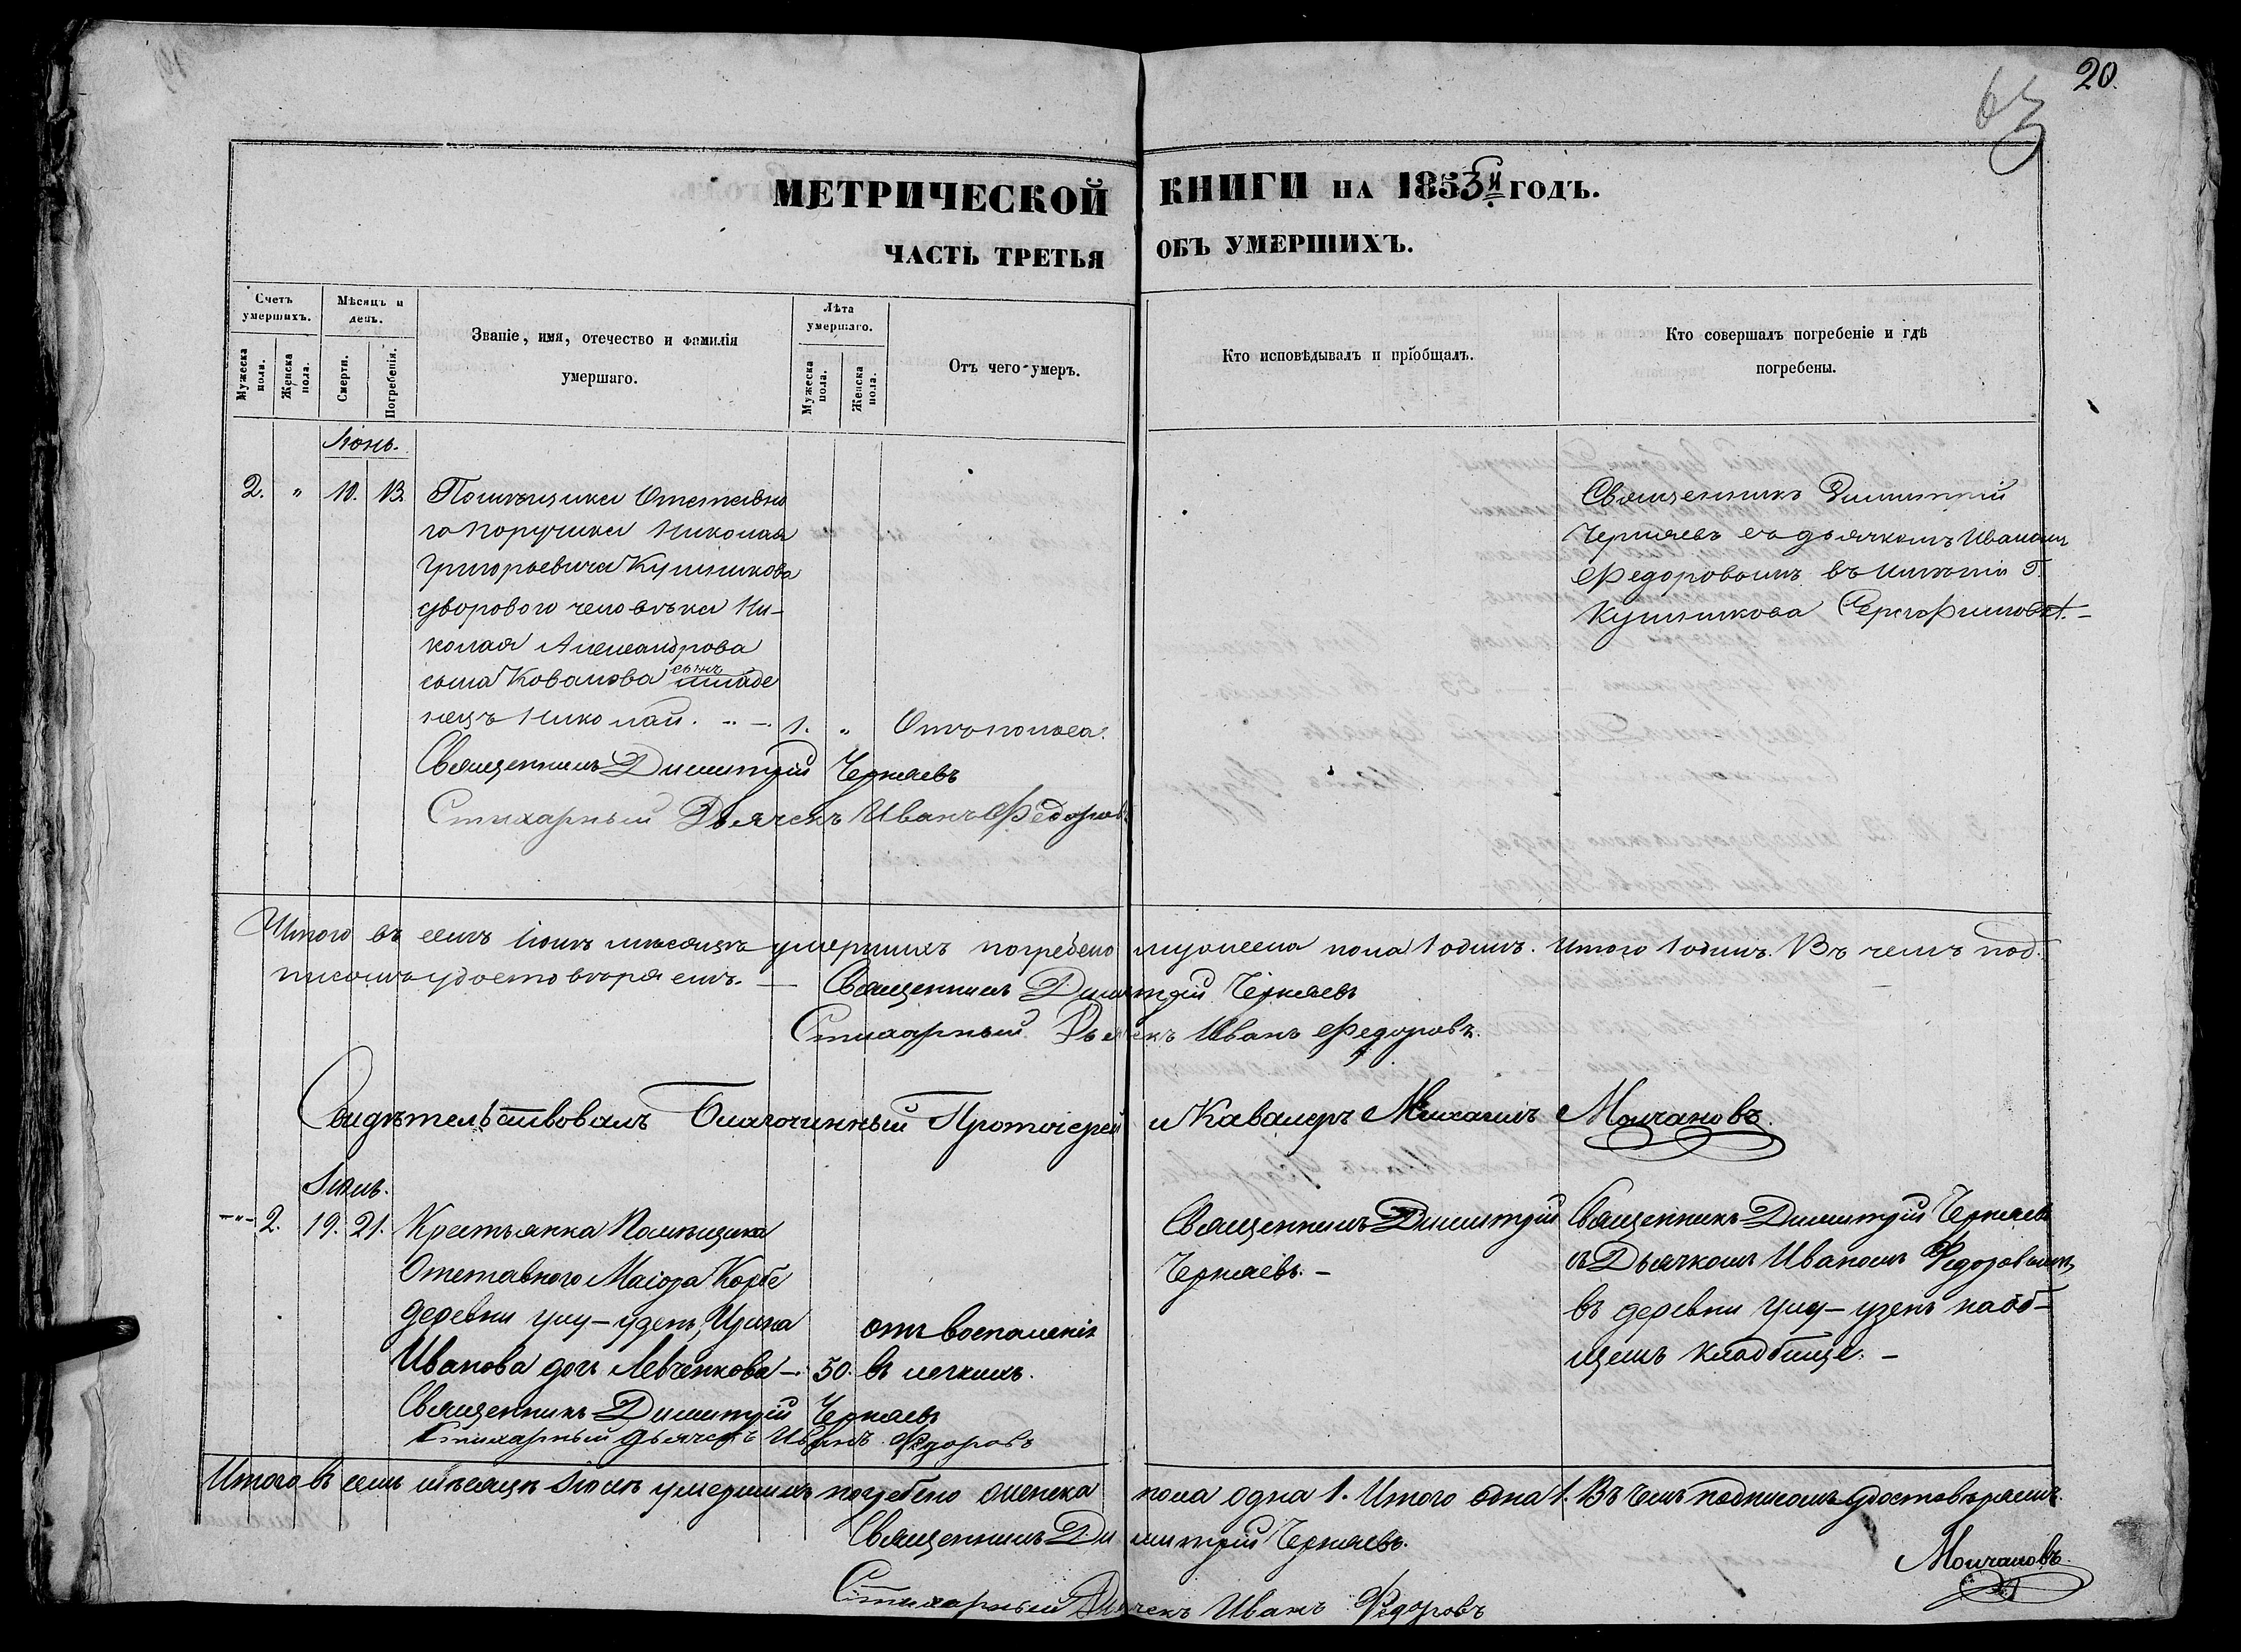 20.
63
МЕТРИЧЕСКОЙ КНИГИ НА 1853й ГОДЪ.
ЧАСТЬ ТРЕТЬЯ ОБЪ УМЕРШИХЪ.
Счетъ умершихъ.
Мужеска пола.
Женска пола.
Мѣсяцъ и день.
Смерти.
Погребенія.
Званіе, имя, отечество и фамилія умершаго.
Лѣта умершаго.
Мужеска пола.
Женска пола.
Отъ чего умеръ.
Кто исповѣдывалъ и пріобщалъ.
Кто совершалъ погребеніе и гдѣ погребены.
Іюнь.
2. " 10. 13. Помѣщика Отставна
го Поручика Николая
Григорьевича Кушникова
двороваго человѣка Ни-
колая Александрова
сына Ковалова сынъ младе
нецъ Николай. 1. " Отъ поноса.
Священникъ Димитрій Черняевъ
Стихарный Дьячекъ Иванъ Федоровъ
Священникъ Димитрій
Черняевъ съ дьячкомъ Иваномъ
Федоровымъ въ имѣніи Г.
Кушникова
Итого въ семъ Іюнѣ мѣсяцѣ умершихъ погребено мужеска пола 1 одинъ. Итого 1 одинъ. Въ чемъ под-
писомъ удостовѣряемъ. — Священникъ Димитрій Черняевъ
Стихарный Дьячекъ Иванъ Федоровъ.
Свидѣтельствовалъ Благочинный Протоіерей и Кавалеръ Михаилъ Молчановъ.
Іюль.
" 2. 19. 21. Крестьянка Помѣщика
Отставнаго Маіора Корбе
деревни Улу-узень, Ирина
Иванова дочь Левченкова — 50. отъ воспаленія
въ легкихъ.
Священникъ Димитрій Черняевъ
Стихарный дьячекъ Иванъ Федоровъ
Священникъ Димитрій
Черняевъ. —
Священникъ Димитрій Черняевъ
съ Дьячкомъ Иваномъ Федоровымъ
въ деревни Улу-узень на об-
щемъ кладбище. —
Итого въ семъ мѣсяцѣ Іюлѣ умершихъ погребено женска пола одна 1. Итого одна 1. Въ чемъ подписомъ удостовѣряемъ.
Священникъ Димитрій Черняевъ.
Молчановъ.
Стихарный Дьячекъ Иванъ Федоровъ